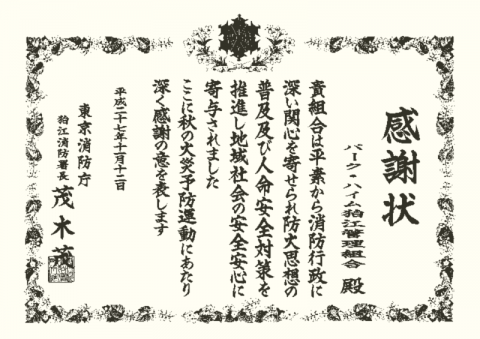 感謝状
パーク・ハイム狛江管理組合 殿
貴組合は平素から消防行政に
深い関心を寄せられ防火思想の
普及及び人命安全対策を
推進し地域社会の安全安心に
寄与されました
ここに秋の火災予防運動にあたり
深く感謝の意を表します
平成二十七年十一月十二日
東京消防庁
狛江消防署長 茂木茂